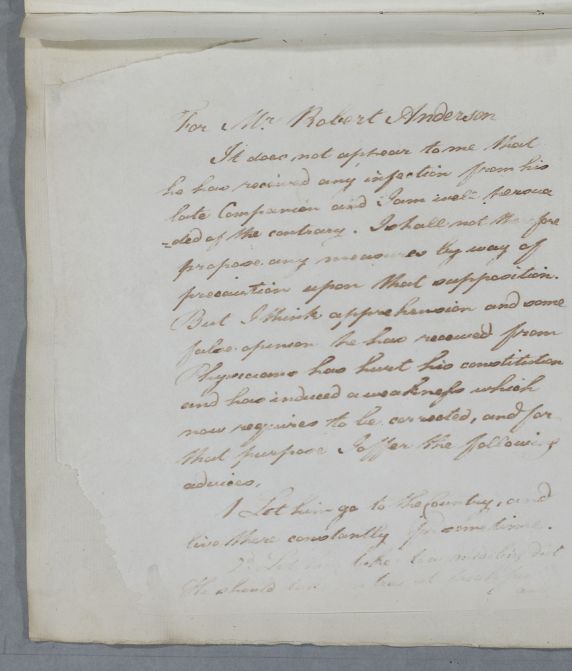 For Mr. Robert Anderson
It does not appear to me that
he has received any infection from his
late Companion and I am well perswa
=ded of the contrary. I shall not therefore
propose any measures by way of
precaution upon that supposition.
But I think apprehension and some
false opinion he has received from
Physicians has hurt his constitution
and has induced a weakness which
now requires to be corrected, and for
that purpose I offer the following
advices.
1 Let him go to the Country, and
live there constantly for some time.
2 Let him take
He should